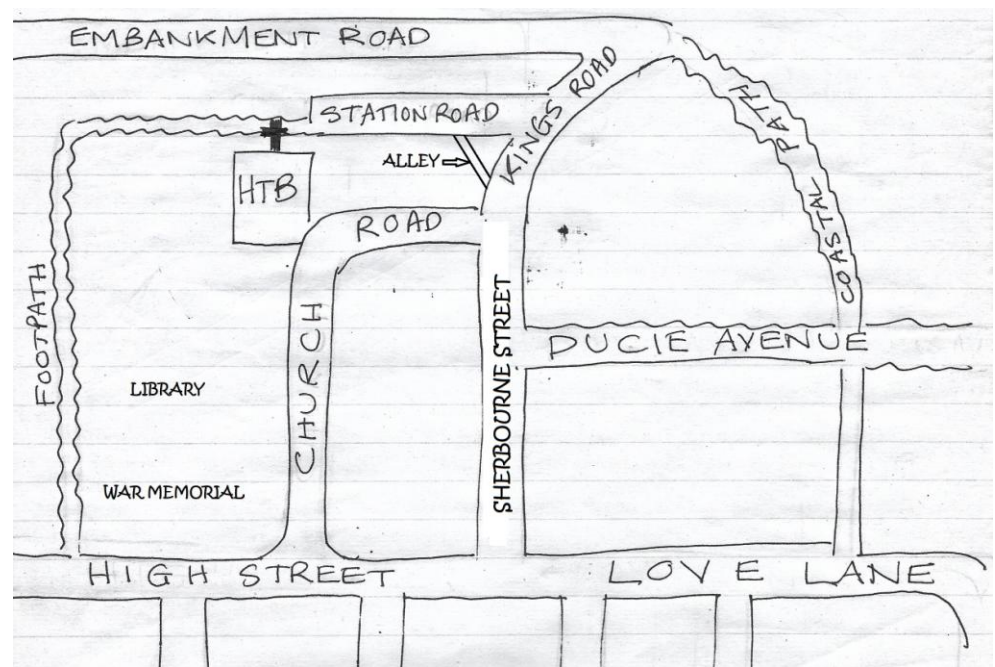 EMBANKMENT ROAD
STATION ROAD
KINGS ROAD
COASTAL PATH
ALLEY
HTB
ROAD
FOOTPATH
CHURCH
SHERBOURNE STREET
DUCIE AVENUE
LIBRARY
WAR MEMORIAL
HIGH STREET
LOVE LANE